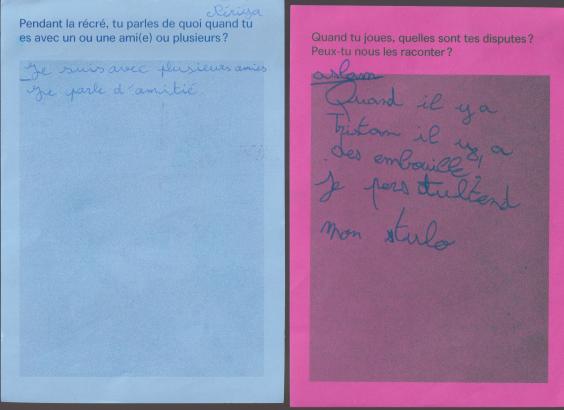 Pendant la récré, tu parles de quoi quand tu
es avec un ou une ami(e) ou plusieurs ?
Je suis avec plusieurs amies
Je parle d'amitié
Quand tu joues, quelles sont tes disputes ?
Peux-tu nous les raconter ?
aslam
Quand il y a
Tristan il y a
des embouille
Je pers
mon stylo